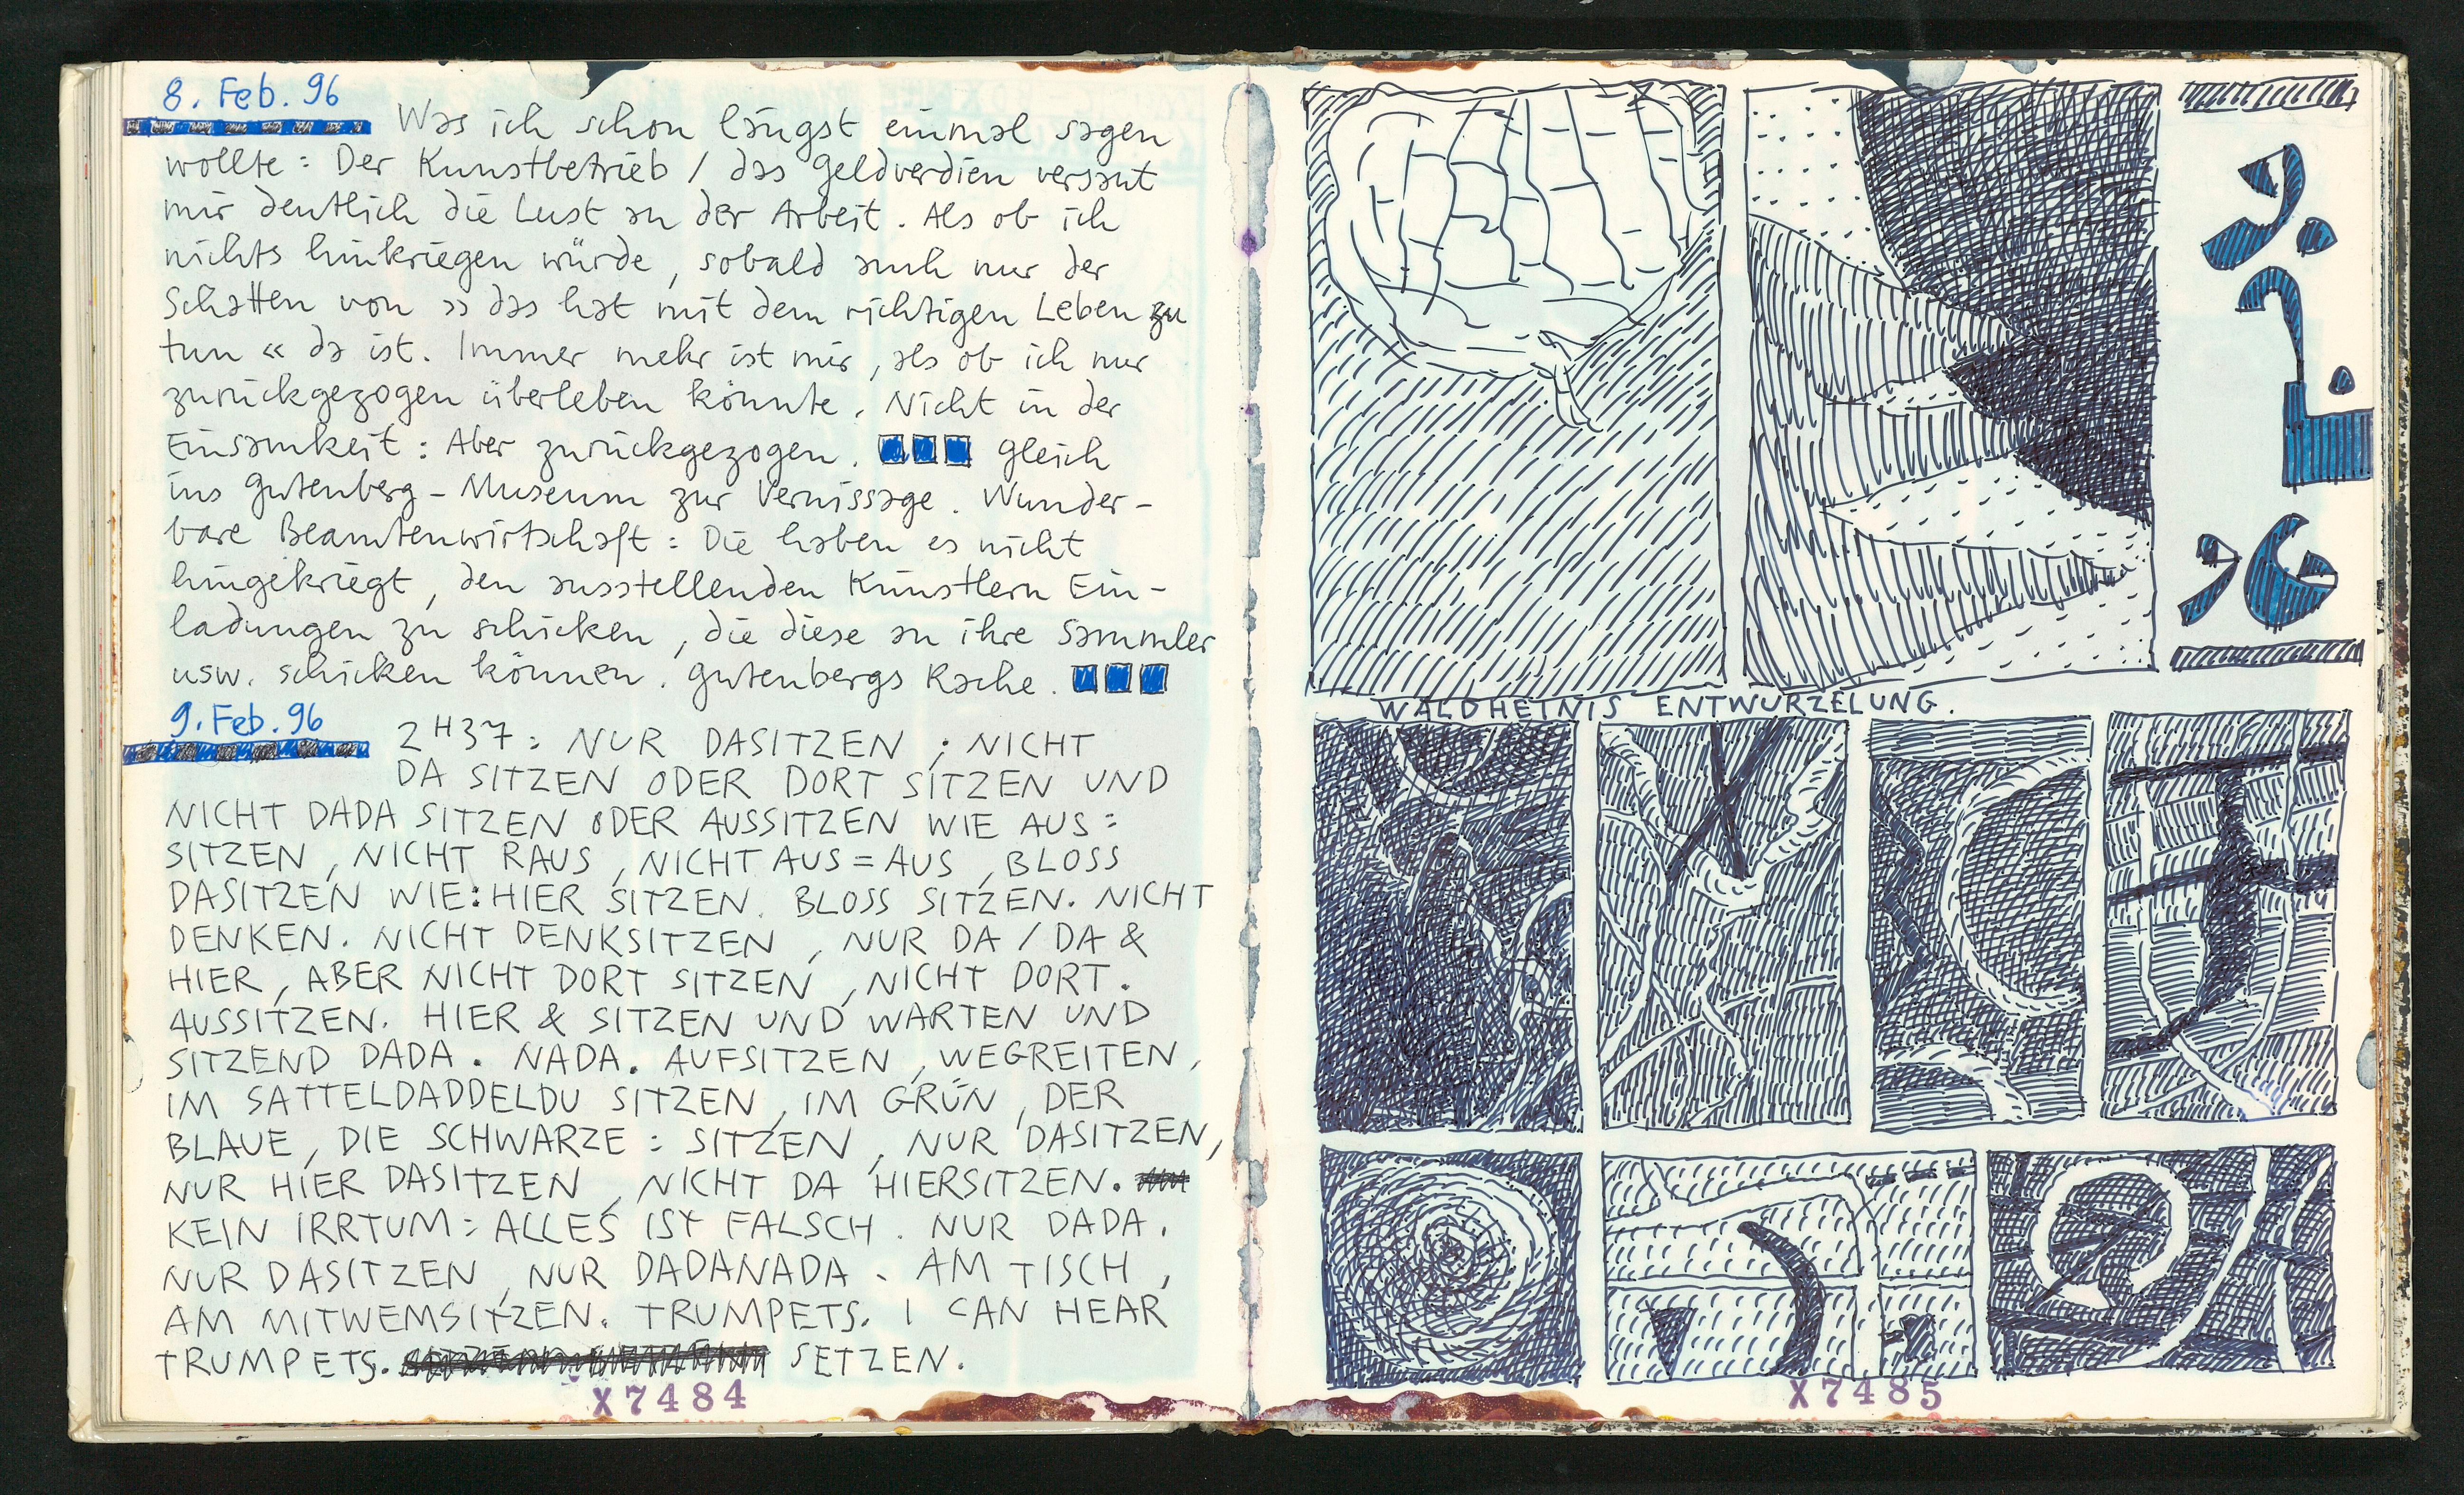 8. Feb. 96
Was ich schon längst einmal sagen
wollte: Der Kunstbetrieb / das Geldverdien versaut
mir deutlich die Lust an der Arbeit. Als ob ich
nichts hinkriegen würde, sobald auch nur der
Schatten von »das hat mit dem richtigen Leben zu
tun« da ist. Immer mehr ist mir, als ob ich nur
zurückgezogen überleben könnte. Nicht in der
Einsamkeit: Aber zurückgezogen. gleich
ins Gutenberg-Museum zur Vernissage. Wunder-
bare Beamtenwirtschaft: Die haben es nicht
hingekriegt, den ausstellenden Künstlern Ein-
ladungen zu schicken, die diese an ihre Sammler
usw. schicken können. Gutenbergs Rache.
9. Feb. 96
2H37: NUR DASITZEN; NICHT
DA SITZEN ODER DORT SITZEN UND
NICHT DADA SITZEN ODER AUSSITZEN WIE AUS=
SITZEN, NICHT RAUS, NICHT AUS=AUS, BLOSS
DASITZEN WIE: HIER SITZEN. BLOSS SITZEN. NICHT
DENKEN. NICHT DENKSITZEN, NUR DA / DA &
HIER, ABER NICHT DORT SITZEN, NICHT DORT.
AUSSITZEN. HIER & SITZEN UND WARTEN UND
SITZEND DADA. NADA. AUFSITZEN, WEGREITEN,
IM SATTELDADDELDU SITZEN, IM GRÜN, DER
BLAUE, DIE SCHWARZE: SITZEN, NUR DASITZEN,
NUR HIER DASITZEN, NICHT DA HIERSITZEN.
KEIN IRRTUM: ALLES IST FALSCH. NUR DADA.
NUR DASITZEN, NUR DADANADA. AM TISCH,
AM MITWEMSITZEN. TRUMPETS. I CAN HEAR
TRUMPETS. SETZEN.
X7484
9.
2.
96
WALDHETNIS ENTWURZELUNG.
X7485